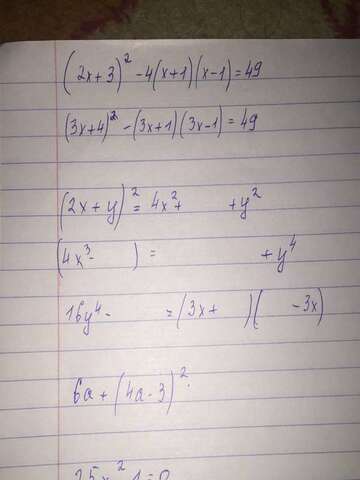 (2x+3)² -4(x+1)(x-1)=49
(3x+4)² -(3x+1)(3x-1)=49
(2x+y)² = 4x²+ +y²
(4x³- ) = +y⁴
16y⁴- =(3x+ )( -3x)
6a+(4a-3)².